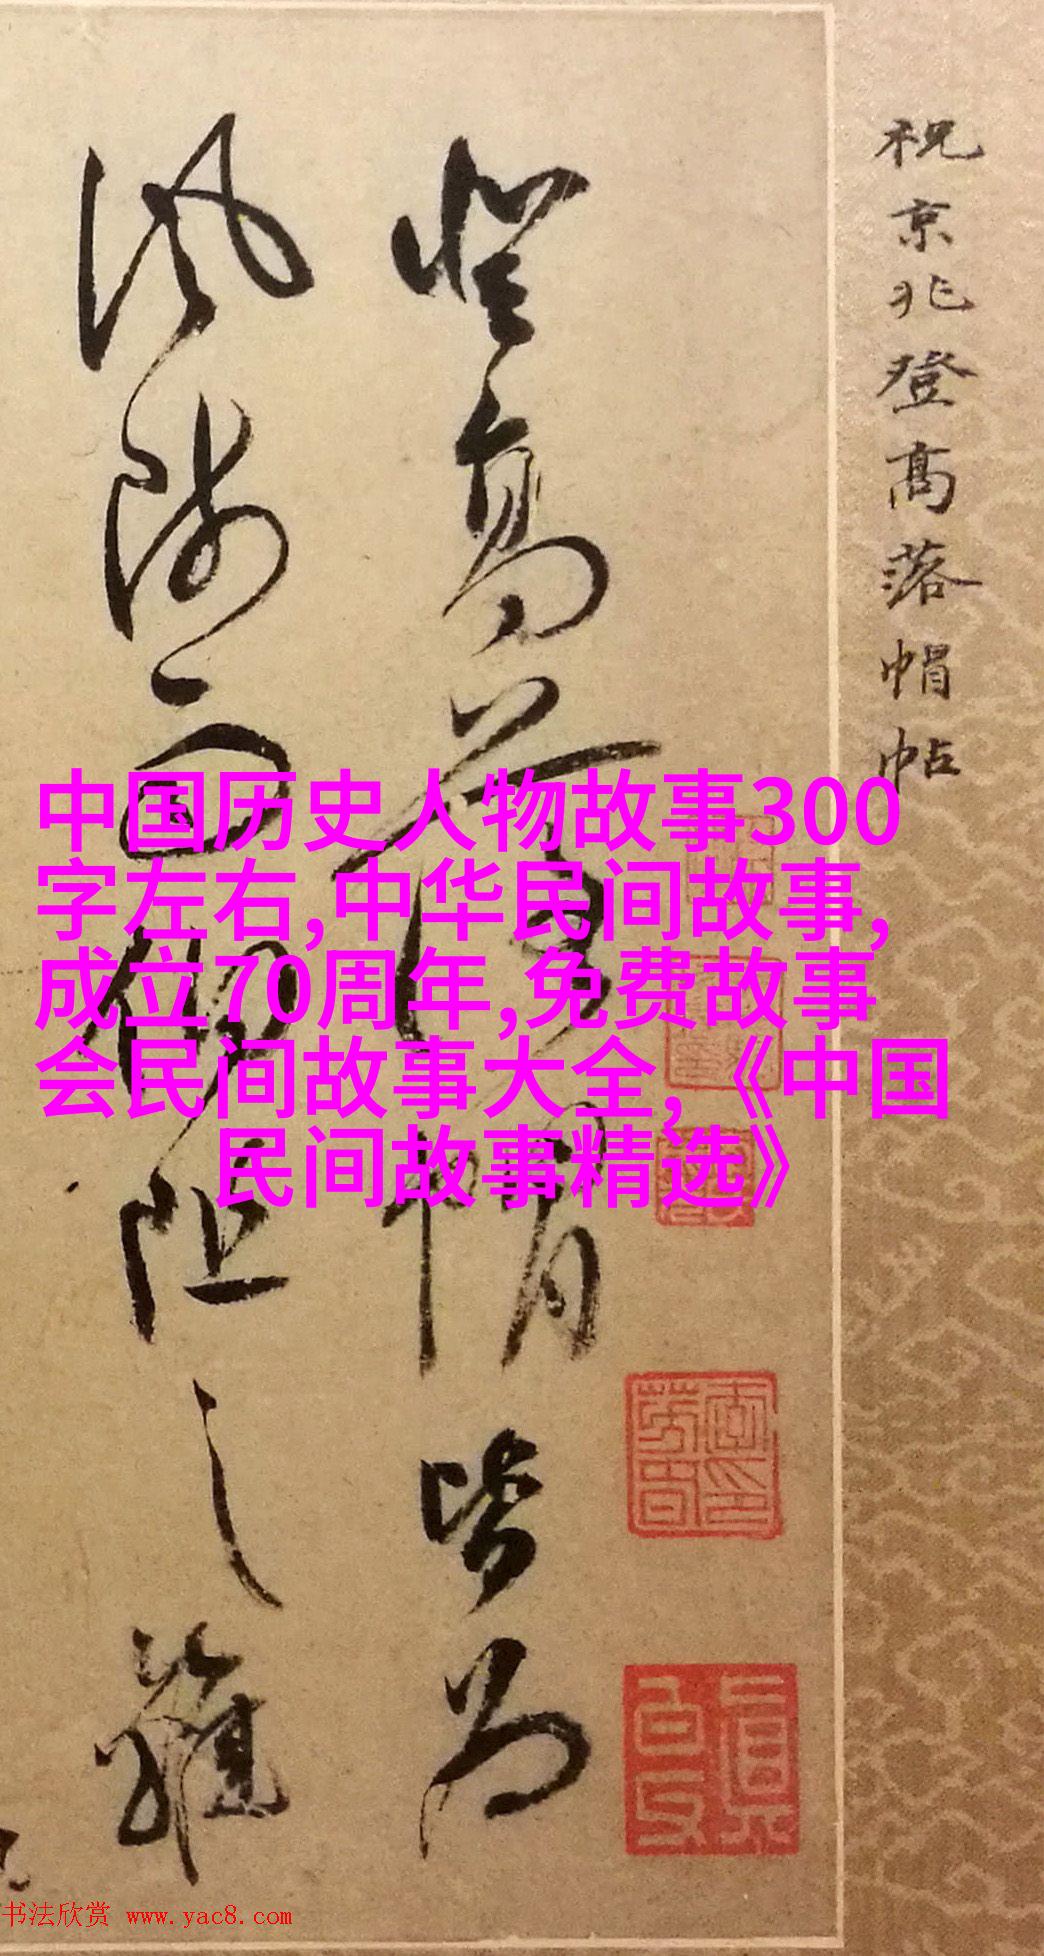 祝京兆登高落帽帖
登高落帽皆為
風師雨伯阻之雖
中国历史人物故事300
字左右,中华民间故事,
成立70周年,免费故事
会民间故事大全,《中国
民间故事精选》
书法欣赏 www.yac8.com